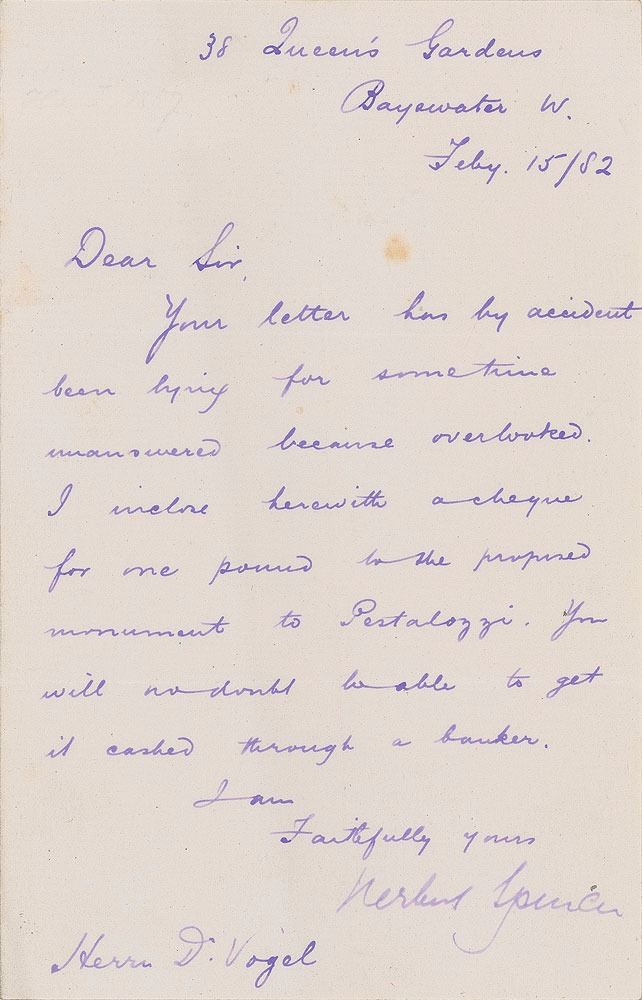 38 Queen's Gardens
Bayswater W.
Feby. 15/82
Dear Sir,
Your letter has by accident
been lying for sometime
unanswered because overlooked.
I inclose herewith a cheque
for one pound to the proposed
monument to Pestalozzi. You
will no doubt be able to get
it cashed through a banker.
I am
Faithfully yours
Herbert Spencer
Herrn Dr. Vogel